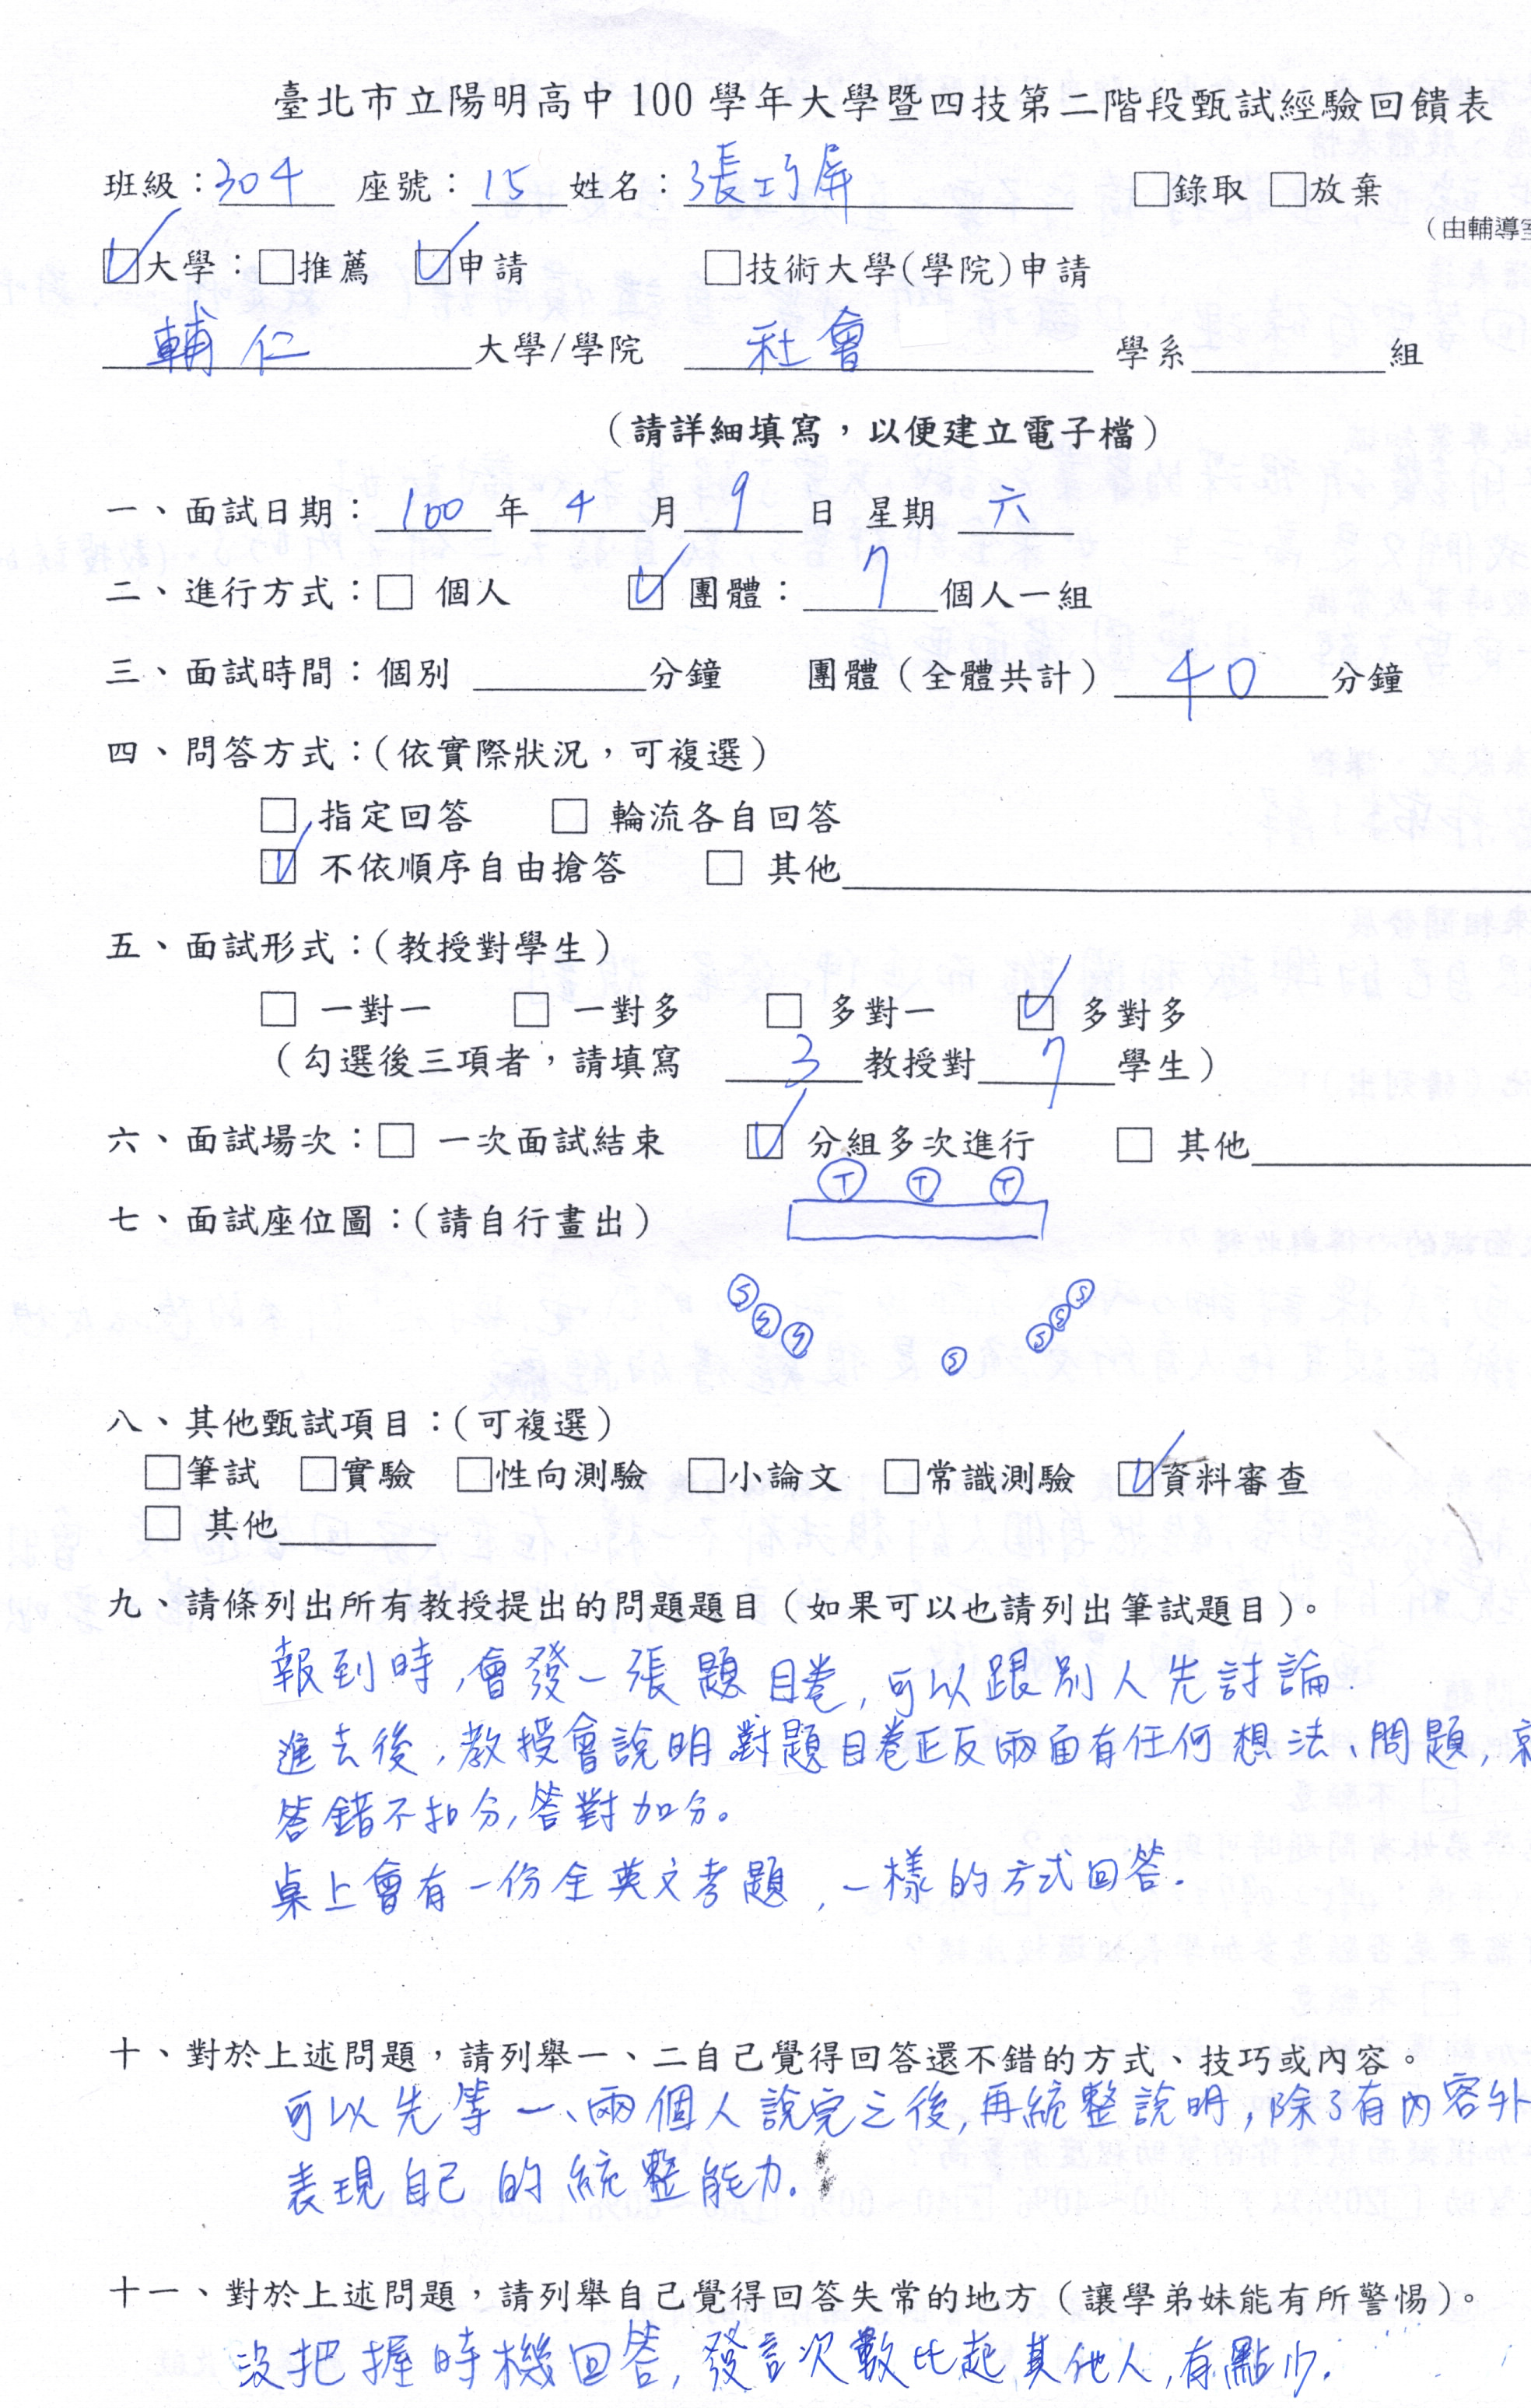 臺北市立陽明高中100學年大學暨四技第二階段甄試經驗回饋表
班級：304 座號：15 姓名：張巧屏 □錄取 □放棄
（由輔導室
☑大學：□推薦 ☑申請 □技術大學(學院)申請
輔仁 大學/學院 社會 學系______組
（請詳細填寫，以便建立電子檔）
一、面試日期：100年4月9日 星期 六
二、進行方式：□ 個人 ☑ 團體：7個人一組
三、面試時間：個別 ______分鐘 團體（全體共計）40分鐘
四、問答方式：（依實際狀況，可複選）
□ 指定回答 □ 輪流各自回答
☑ 不依順序自由搶答 □ 其他______
五、面試形式：（教授對學生）
□ 一對一 □ 一對多 □ 多對一 ☑ 多對多
（勾選後三項者，請填寫 3教授對7學生）
六、面試場次：□ 一次面試結束 ☑ 分組多次進行 □ 其他______
T T T
七、面試座位圖：（請自行畫出）
S S S S S S S
八、其他甄試項目：（可複選）
□筆試 □實驗 □性向測驗 □小論文 □常識測驗 ☑資料審查
□ 其他______
九、請條列出所有教授提出的問題題目（如果可以也請列出筆試題目）。
報到時,會發一張題目卷,可以跟別人先討論.
進去後,教授會說明對題目卷正反兩面有任何想法、問題,就
答錯不扣分,答對加分。
桌上會有一份全英文考題,一樣的方式回答.
十、對於上述問題，請列舉一、二自己覺得回答還不錯的方式、技巧或內容。
可以先等一、兩個人說完之後,再統整說明,除了有內容外
表現自己的統整能力.
十一、對於上述問題，請列舉自己覺得回答失常的地方（讓學弟妹能有所警惕）。
沒把握時機回答,發言次數比起其他人,有點少.